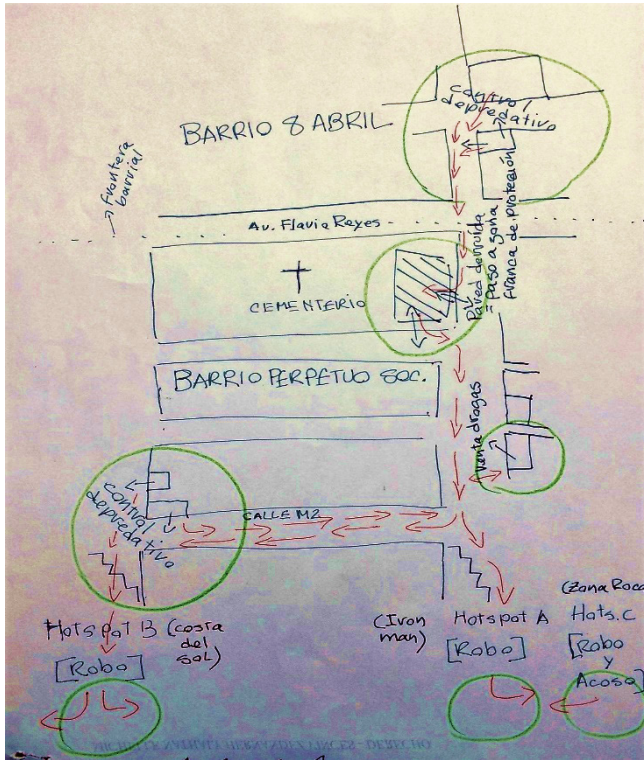 control
depredativo
BARRIO 8 ABRIL
→ frontera
barrial
Av. Flavio Reyes
Pared derruida
= Paso a zona
franca de protección
CEMENTERIO
BARRIO PERPETUO SOC.
Venta drogas
control
depredativo
CALLE M2
Hotspot B (costa
del
sol)
[Robo]
(Iron
man)
Hotspot A
[Robo]
(Zona Roca
Hots. C
[Robo
y
Acoso]